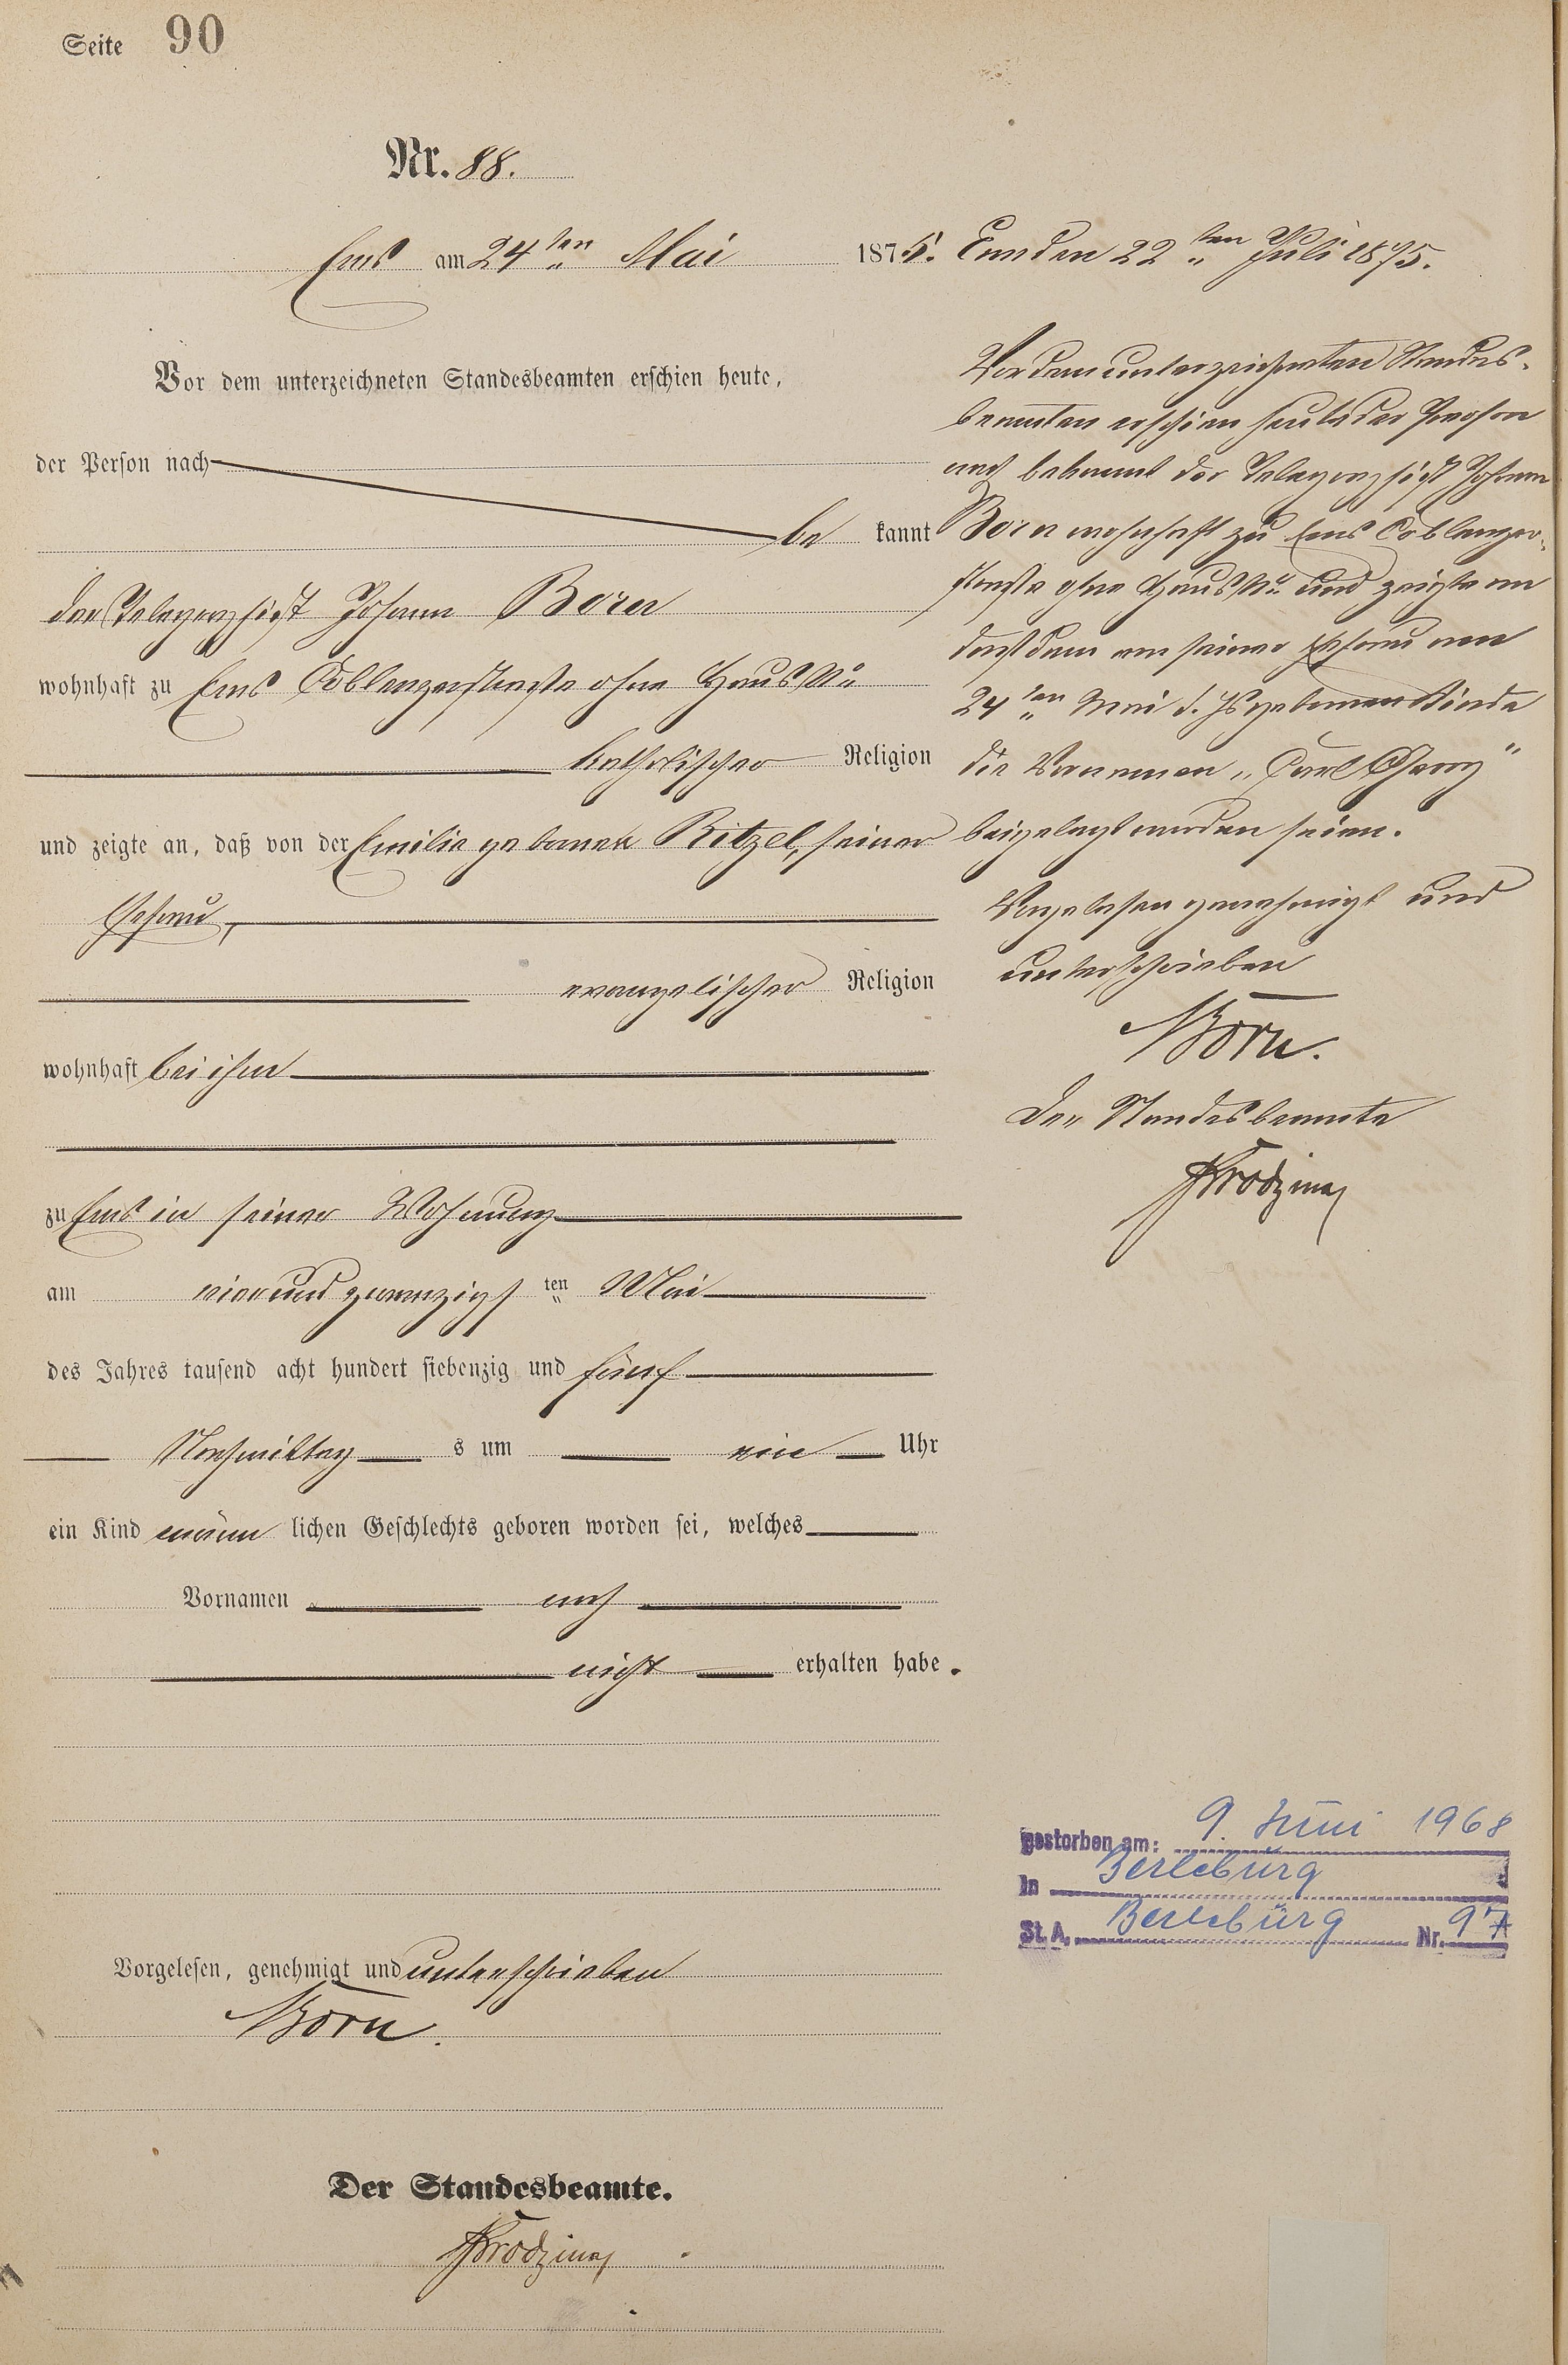 Seite 90
Nr. 88.
Ems am 24ten Mai 1875.
Vor dem unterzeichneten Standesbeamten erschien heute,
der Person nach
be kannt
der Telegraphist Johann Born
wohnhaft zu Ems Coblenzerstraße ohne Haus No
katholischer Religion
und zeigte an, daß von der Emilie geborene Ritzel, seiner
Ehefrau,
evangelischer Religion
wohnhaft bei ihm
zu Ems in seiner Wohnung
am vierundzwanzigs ten Mai
des Jahres tausend acht hundert siebenzig und fünf
Nachmittag s um ein Uhr
ein Kind männ lichen Geschlechts geboren worden sei, welches
Vornamen noch
nicht erhalten habe.
Vorgelesen, genehmigt und unterschrieben
Born.
Der Standesbeamte.
Ems den 22ten Juli 1875.
Vor dem unterzeichneten Standes-
beamten erschien heute der Person
nach bekannt der Telegraphist Johann
Born wohnhaft zu Ems Coblenzer-
straße ohne Haus No und zeigte an
daß dem von seiner Ehefrau am
24ten Mai d. Js geborenen Kinde
die Vornamen "Carl Georg"
beigelegt worden seien.
Vorgelesen genehmigt und
unterschrieben
Born.
Der Standesbeamte
gestorben am: 9. Juni 1968
in Berleburg
St. A. Berleburg Nr. 97